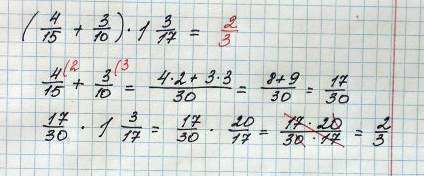 (4/15 + 3/10) · 1 3/17 = 2/3
4/15 (2 + 3/10 (3 = (4·2 + 3·3)/30 = (8+9)/30 = 17/30
17/30 · 1 3/17 = 17/30 · 20/17 = (17 · 20)/(30 · 17) = 2/3